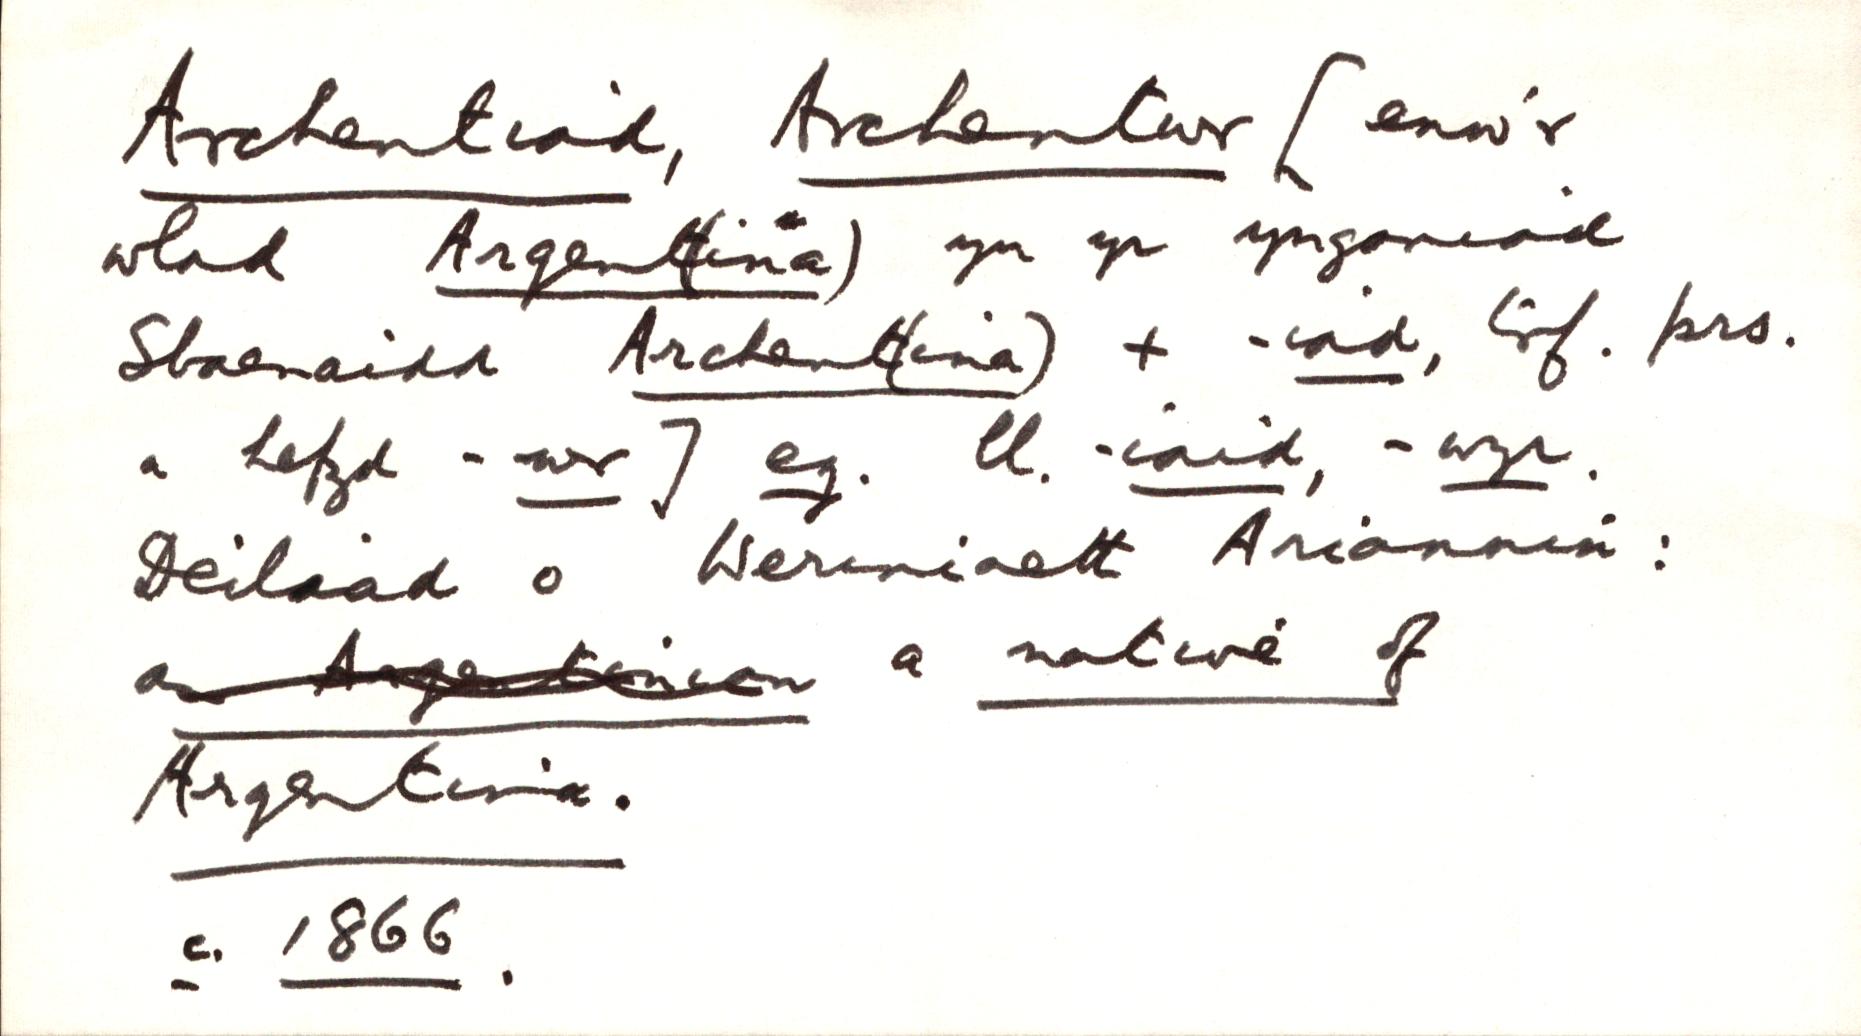 Archentiad, Archentwr [enw'r
wlad Argent(ina) yn yr ynganiad
Sbaenaidd Archent(ina) + -iad, trf. prs.
a hefyd -wr] eg. ll. -iaid, -wyr.
Deiliad o Weriniaeth Ariannin:
an Argentinian a native of
Argentina.
c. 1866.